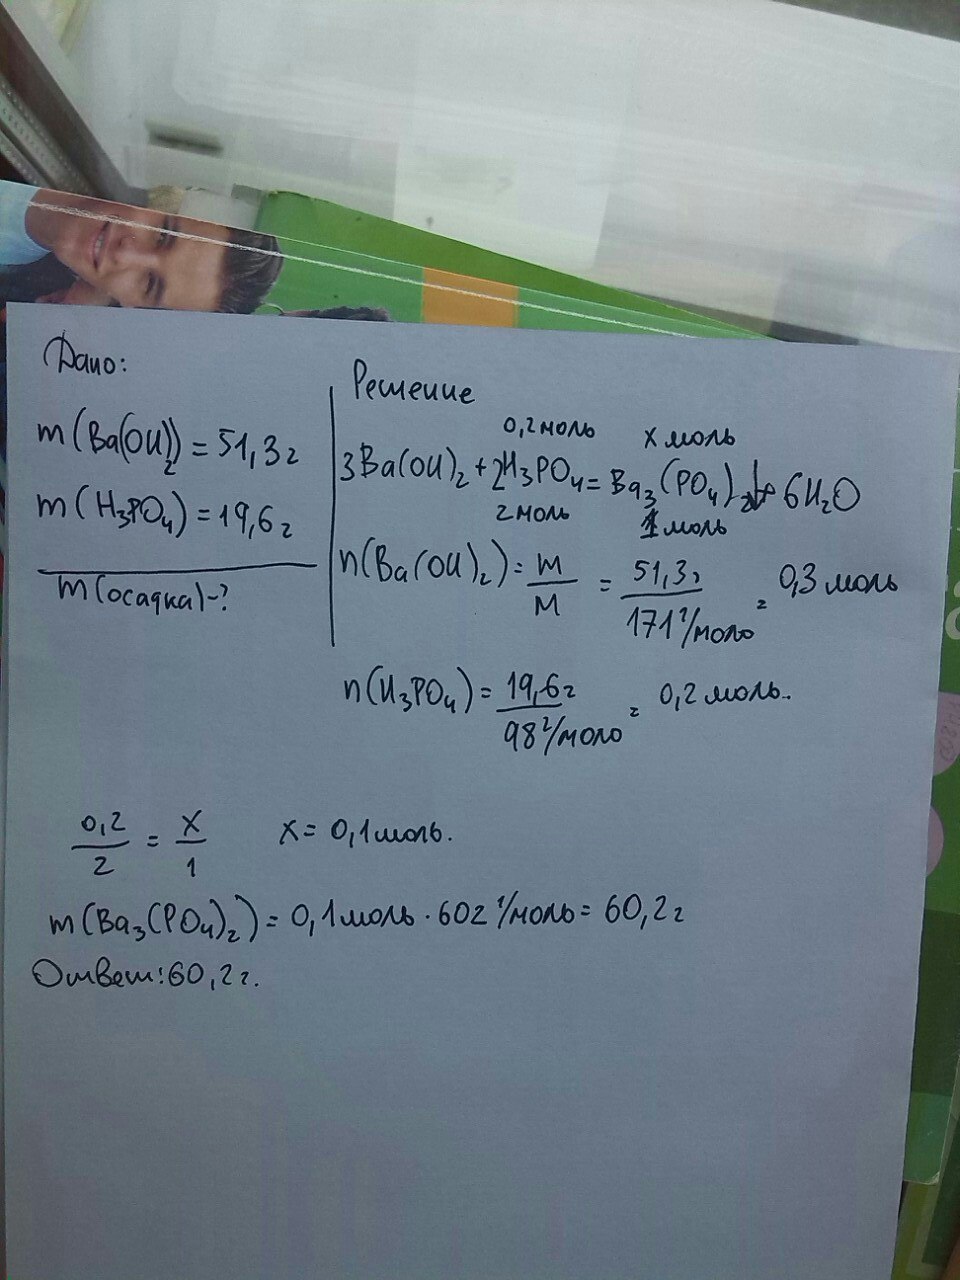 Дано:
m(Ba(OH)₂) = 51,3г
m(H₃PO₄) = 19,6г
m(осадка)-?
Решение
0,2моль x моль
3Ba(OH)₂ + 2H₃PO₄ = Ba₃(PO₄)₂↓ + 6H₂O
2моль 1моль
n(Ba(OH)₂) = m/M = 51,3г/171г/моль = 0,3 моль
n(H₃PO₄) = 19,6г/98г/моль = 0,2 моль.
0,2/2 = x/1 x = 0,1моль.
m(Ba₃(PO₄)₂) = 0,1моль · 602 г/моль = 60,2г
Ответ: 60,2г.